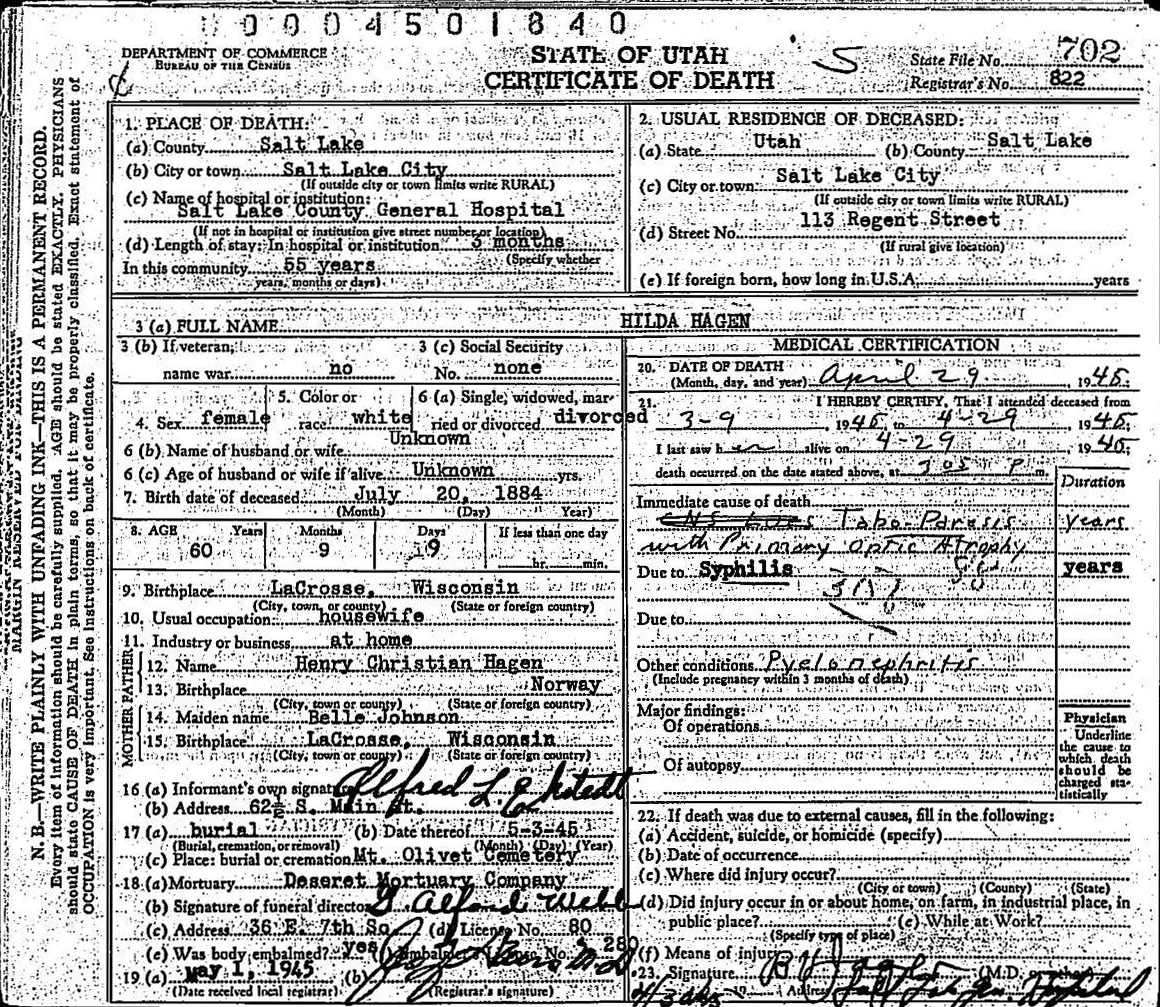 0004501840
DEPARTMENT OF COMMERCE
BUREAU OF THE CENSUS
STATE OF UTAH
CERTIFICATE OF DEATH
S
State File No. 702
Registrar's No. 822
N. B.—WRITE PLAINLY WITH UNFADING INK—THIS IS A PERMANENT RECORD.
Every item of information should be carefully supplied. AGE should be stated EXACTLY. PHYSICIANS
should state CAUSE OF DEATH in plain terms, so that it may be properly classified. Exact statement of
OCCUPATION is very important. See instructions on back of certificate.
1. PLACE OF DEATH:
(a) County Salt Lake
(b) City or town Salt Lake City
(If outside city or town limits write RURAL)
(c) Name of hospital or institution:
Salt Lake County General Hospital
(If not in hospital or institution give street number or location)
(d) Length of stay: In hospital or institution 3 months
(Specify whether
In this community 55 years
years, months or days)
2. USUAL RESIDENCE OF DECEASED:
(a) State Utah (b) County Salt Lake
(c) City or town Salt Lake City
(If outside city or town limits write RURAL)
(d) Street No. 113 Regent Street
(If rural give location)
(e) If foreign born, how long in U.S.A. years
3 (a) FULL NAME HILDA HAGEN
3 (b) If veteran, 3 (c) Social Security
name war no No. none
4. Sex female 5. Color or race white 6 (a) Single, widowed, married or divorced divorced
6 (b) Name of husband or wife Unknown
6 (c) Age of husband or wife if alive Unknown yrs.
7. Birth date of deceased July 20, 1884
(Month) (Day) Year)
8. AGE Years Months Days If less than one day
60 9 9 hr. min.
9. Birthplace LaCrosse, Wisconsin
(City, town, or county) (State or foreign country)
10. Usual occupation housewife
11. Industry or business at home
MOTHER FATHER
12. Name Henry Christian Hagen
13. Birthplace Norway
(City, town or county) (State or foreign country)
14. Maiden name Belle Johnson
15. Birthplace LaCrosse, Wisconsin
(City, town or county) (State or foreign country)
16 (a) Informant's own signature Alfred L.
(b) Address 62½ S. Main St.
17 (a) burial (b) Date thereof 5-3-45
(Burial, cremation, or removal) (Month) (Day) (Year)
(c) Place: burial or cremation Mt. Olivet Cemetery
18 (a) Mortuary Deseret Mortuary Company
(b) Signature of funeral director G Alford Webb
(c) Address 36 E. 7th So. (d) License No. 80
(e) Was body embalmed? yes Embalmer's License No. 280
19 (a) May 1, 1945 (b)
(Date received local registrar) (Registrar's signature)
MEDICAL CERTIFICATION
20. DATE OF DEATH
(Month, day, and year) April 29, 1945;
21. I HEREBY CERTIFY, That I attended deceased from
3-9, 1945, to 4-29 1945;
I last saw her alive on 4-29, 1945;
death occurred on the date stated above, at 305 P m.
Duration
Immediate cause of death
Tabo-Paresis years
with Primary Optic Atrophy
Due to Syphilis years
Due to
Other conditions Pyelonephritis
(Include pregnancy within 3 months of death)
Major findings:
Of operations
Of autopsy
Physician
Underline
the cause to
which death
should be
charged sta-
tistically
22. If death was due to external causes, fill in the following:
(a) Accident, suicide, or homicide (specify)
(b) Date of occurrence
(c) Where did injury occur?
(City or town) (County) (State)
(d) Did injury occur in or about home, on farm, in industrial place, in
public place? (e) While at Work?
(Specify type of place)
(f) Means of injury
23. Signature (M.D. or other)
Address Hospital